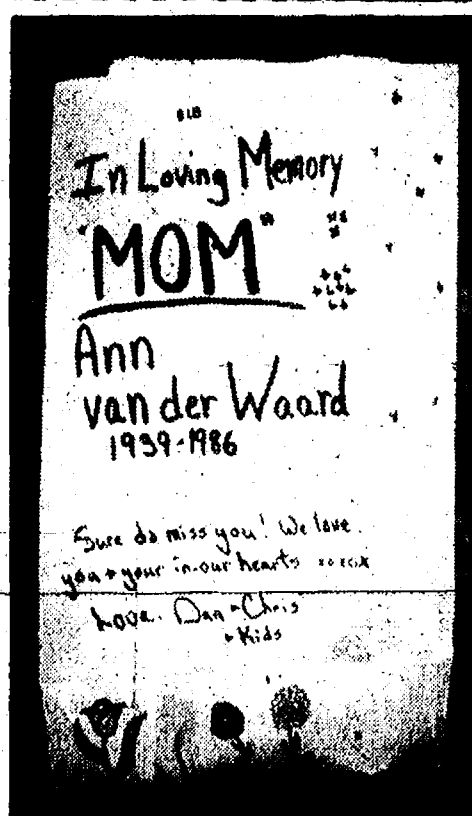 In Loving Memory
"MOM"
Ann
van der Waard
1939-1986
Sure do miss you! We love
you + your in our hearts
Love. Dan + Chris
+ Kids